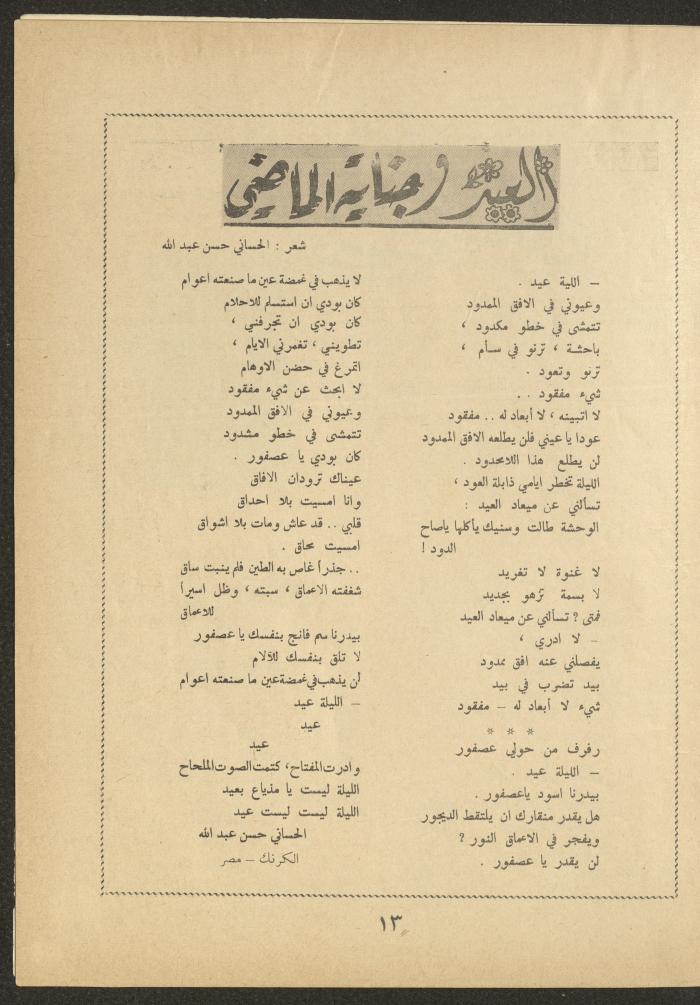 العيد وجناية الماضي
شعر : الحساني حسن عبد الله
— اللية عيد .
وعيوني في الافق الممدود
تتمشى في خطو مكدود ،
باحثة ، ترنو في سأم ،
ترنو وتعود .
شيء مفقود . .
لا اتبينه ، لا أبعاد له .. مفقود
عودا يا عيني فلن يطلعه الافق الممدود
لن يطلع هذا اللامحدود .
الليلة تخطر ايامي ذابلة العود ،
تسألني عن ميعاد العيد :
الوحشة طالت وسنيك يأكلها ياصاح
الدود !
لا غنوة لا تغريد
لا بسمة تزهو بجديد
فمتى ؟ تسألني عن ميعاد العيد
– لا ادري ،
يفصلني عنه افق ممدود
بيد تضرب في بيد
شيء لا أبعاد له – مفقود
* * *
رفرف من حولي عصفور
– الليلة عيد .
بيدرنا اسود ياعصفور .
هل يقدر منقارك ان يلتقط الديجور
ويفجر في الاعماق النور ؟
لن يقدر يا عصفور .
لا يذهب في غمضة عين ما صنعته اعوام
كان بودي ان استسلم للاحلام
كان بودي ان تجرفني ،
تطويني ، تغمرني الايام ،
اتمرغ في حضن الاوهام
لا ابحث عن شيء مفقود
وعيوني في الافق الممدود
تتمشى في خطو مشدود
كان بودي يا عصفور .
عيناك ترودان الافاق
وانا امسيت بلا احداق
قلبي .. قد عاش ومات بلا اشواق
امسيت محاق .
.. جذراً غاص به الطين فلم ينبت ساق
شغفته الاعماق ، سبته ، وظل اسيراً
للاعماق
بيدرنا سم فانج بنفسك يا عصفور
لا تلق بنفسك للآلام
لن يذهب في غمضة عين ما صنعته اعوام
– الليلة عيد
عيد
عيد
وادرت المفتاح، كتمت الصوت الملحاح
الليلة ليست يا مذياع بعيد
الليلة ليست ليست عيد
الحساني حسن عبد الله
الكرنك – مصر
١٣